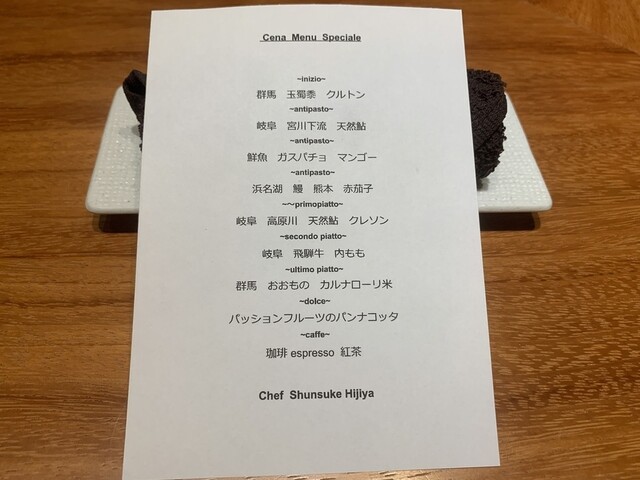 Cena Menu Speciale
~inizio~
群馬 玉蜀黍 クルトン
~antipasto~
岐阜 宮川下流 天然鮎
~antipasto~
鮮魚 ガスパチョ マンゴー
~antipasto~
浜名湖 鰻 熊本 赤茄子
~~primopiatto~
岐阜 高原川 天然鮎 クレソン
~secondo piatto~
岐阜 飛騨牛 内もも
~ultimo piatto~
群馬 おおもの カルナローリ米
~dolce~
パッションフルーツのパンナコッタ
~caffe~
珈琲 espresso 紅茶
Chef Shunsuke Hijiya